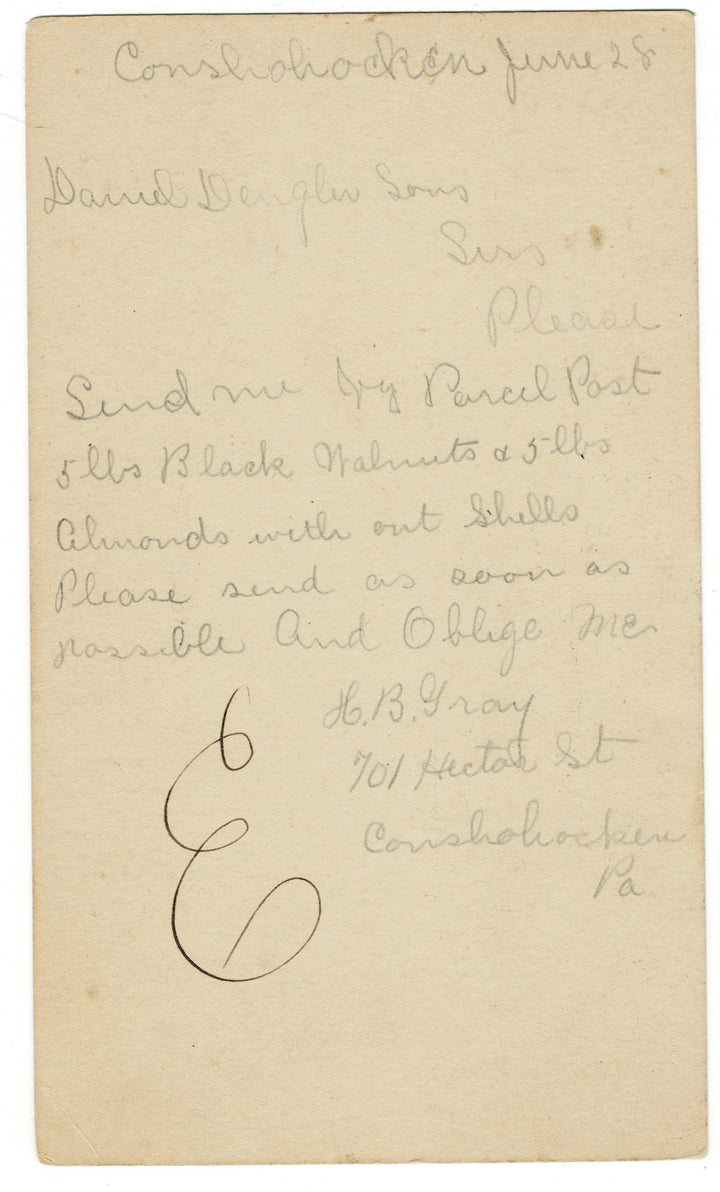 Conshohocken June 28
Daniel Dengler Sons
Sirs
Please
Send me by Parcel Post
5 lbs Black Walnuts & 5 lbs
Almonds with out Shells
Please send as soon as
possible And Oblige Me
H. B. Gray
701 Hector St
Conshohocken
Pa
E